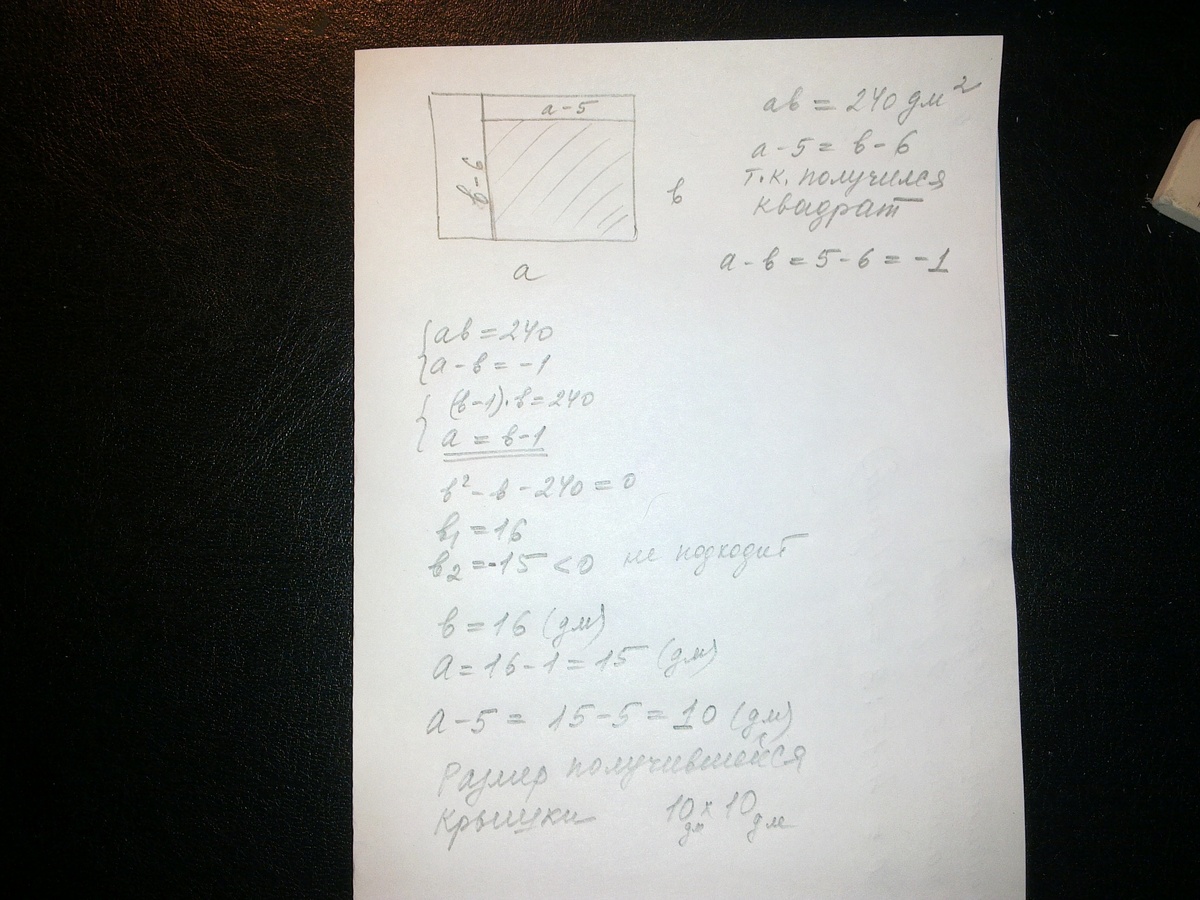 a-5
в-6
в
a
ав = 240 дм²
a-5 = в-6
т.к. получился
квадрат
a-в = 5-6 = -1
{ав = 240
{a-в = -1
{(в-1)·в = 240
{a = в-1
в² - в - 240 = 0
в₁ = 16
в₂ = -15 < 0 не подходит
в = 16 (дм)
a = 16-1 = 15 (дм)
a-5 = 15-5 = 10 (дм)
Размер получившейся
крышки 10 дм х 10 дм